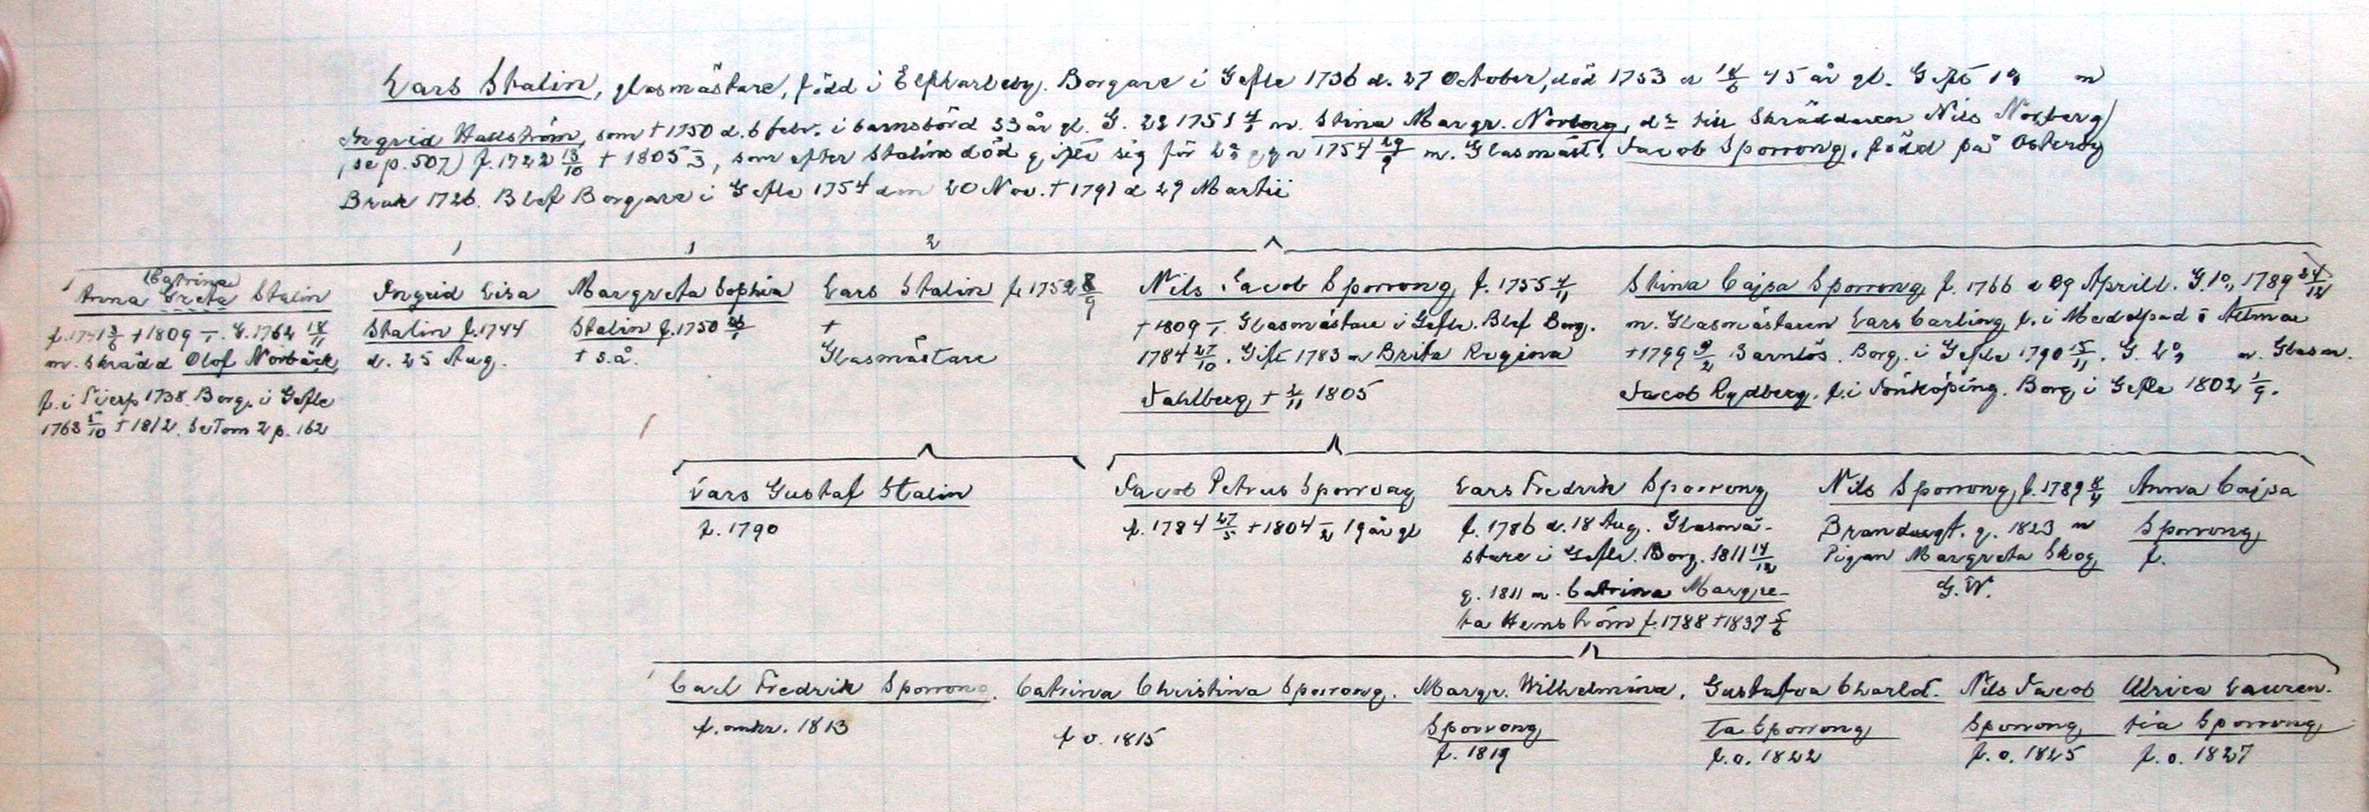 Lars Stalin, glasmästare, född i Elfkarleby. Borgare i Gefle 1736 d. 27 October, död 1753 d 18/6 45 år gl. Gift 1º m
Ingrid Hallström, som † 1750 d. 6 febr. i barnsbörd 33 år gl. G. 2º 1751 m. Stina Margr. Norberg, dr till Skräddaren Nils Norberg
(se p. 507) f. 1722 13/10 † 1805 -/3, som efter Stalins död gifte sig för 2ª g:n 1754 29/9 m. Glasmäst. Jacob Sporrong, född på Österby
Bruk 1726. Blef Borgare i Gefle 1754 den 20 Nov. † 1791 d 29 Martii
1 1 2
Catrina
Anna Greta Stalin
† 1809 G. 1762 18/11
m. Skrädd Olof Norbäck
f. i Tierp 1738. Borg. i Gefle
1763 5/10 † 1812. Se Tom 2 p. 162
Ingrid Lisa
Stalin f. 1744
d. 25 Aug.
Margreta Sophia
Stalin f. 1750
† s.å.
Lars Stalin f. 1752 8/9
†
Glasmästare
Nils Jacob Sporrong f. 1755 4/11
† 1809 Glasmästare i Gefle. Blef Borg.
1784 27/10. Gift 1783 m Brita Regina
Fahlberg † 2/11 1805
Stina Cajsa Sporrong f. 1766 d 09 Aprill. G. 1º, 1789 27/12
m. Glasmästaren Lars Carling f. i Medelpad o Attmar
† 1799 9/2 Barnlös. Borg. i Gefle 1790 15/11. G. 2º, m. Glasm.
Jacob Rydberg. f. i Jönköping. Borg. i Gefle 1802 1/9.
Lars Gustaf Stalin
f. 1790
Jacob Petrus Sporrong
f. 1784 27/5 † 1804 -/2 19 år gl
Lars Fredrik Sporrong
f. 1786 d. 18 Aug. Glasmä-
stare i Gefle. Borg. 1811 14/12
g. 1811 m. Catrina Margre-
ta Hemström f. 1788 † 1837 5/6
Nils Sporrong, f. 1789 8/4
Brandvagt. g. 1823 m
Pigan Margreta Skog
G. W.
Anna Cajsa
Sporrong
f.
Carl Fredrik Sporrong.
f. omkr. 1813
Catrina Christina Sporrong.
f o. 1815
Margr. Wilhelmina.
Sporrong
f. 1819
Gustafva Charlot-
ta Sporrong
f. o. 1822
Nils Jacob
Sporrong
f. o. 1825
Ulrica Lauren-
tia Sporrong
f. o. 1827